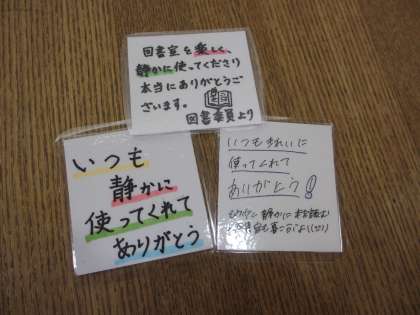 図書室を楽しく、
静かに使ってくださり
本当にありがとうご
ざいます。
図書委員より
いつも
静かに
使ってくれて
ありがとう
いつもきれいに
使ってくれて
ありがとう!
静かに本を読む